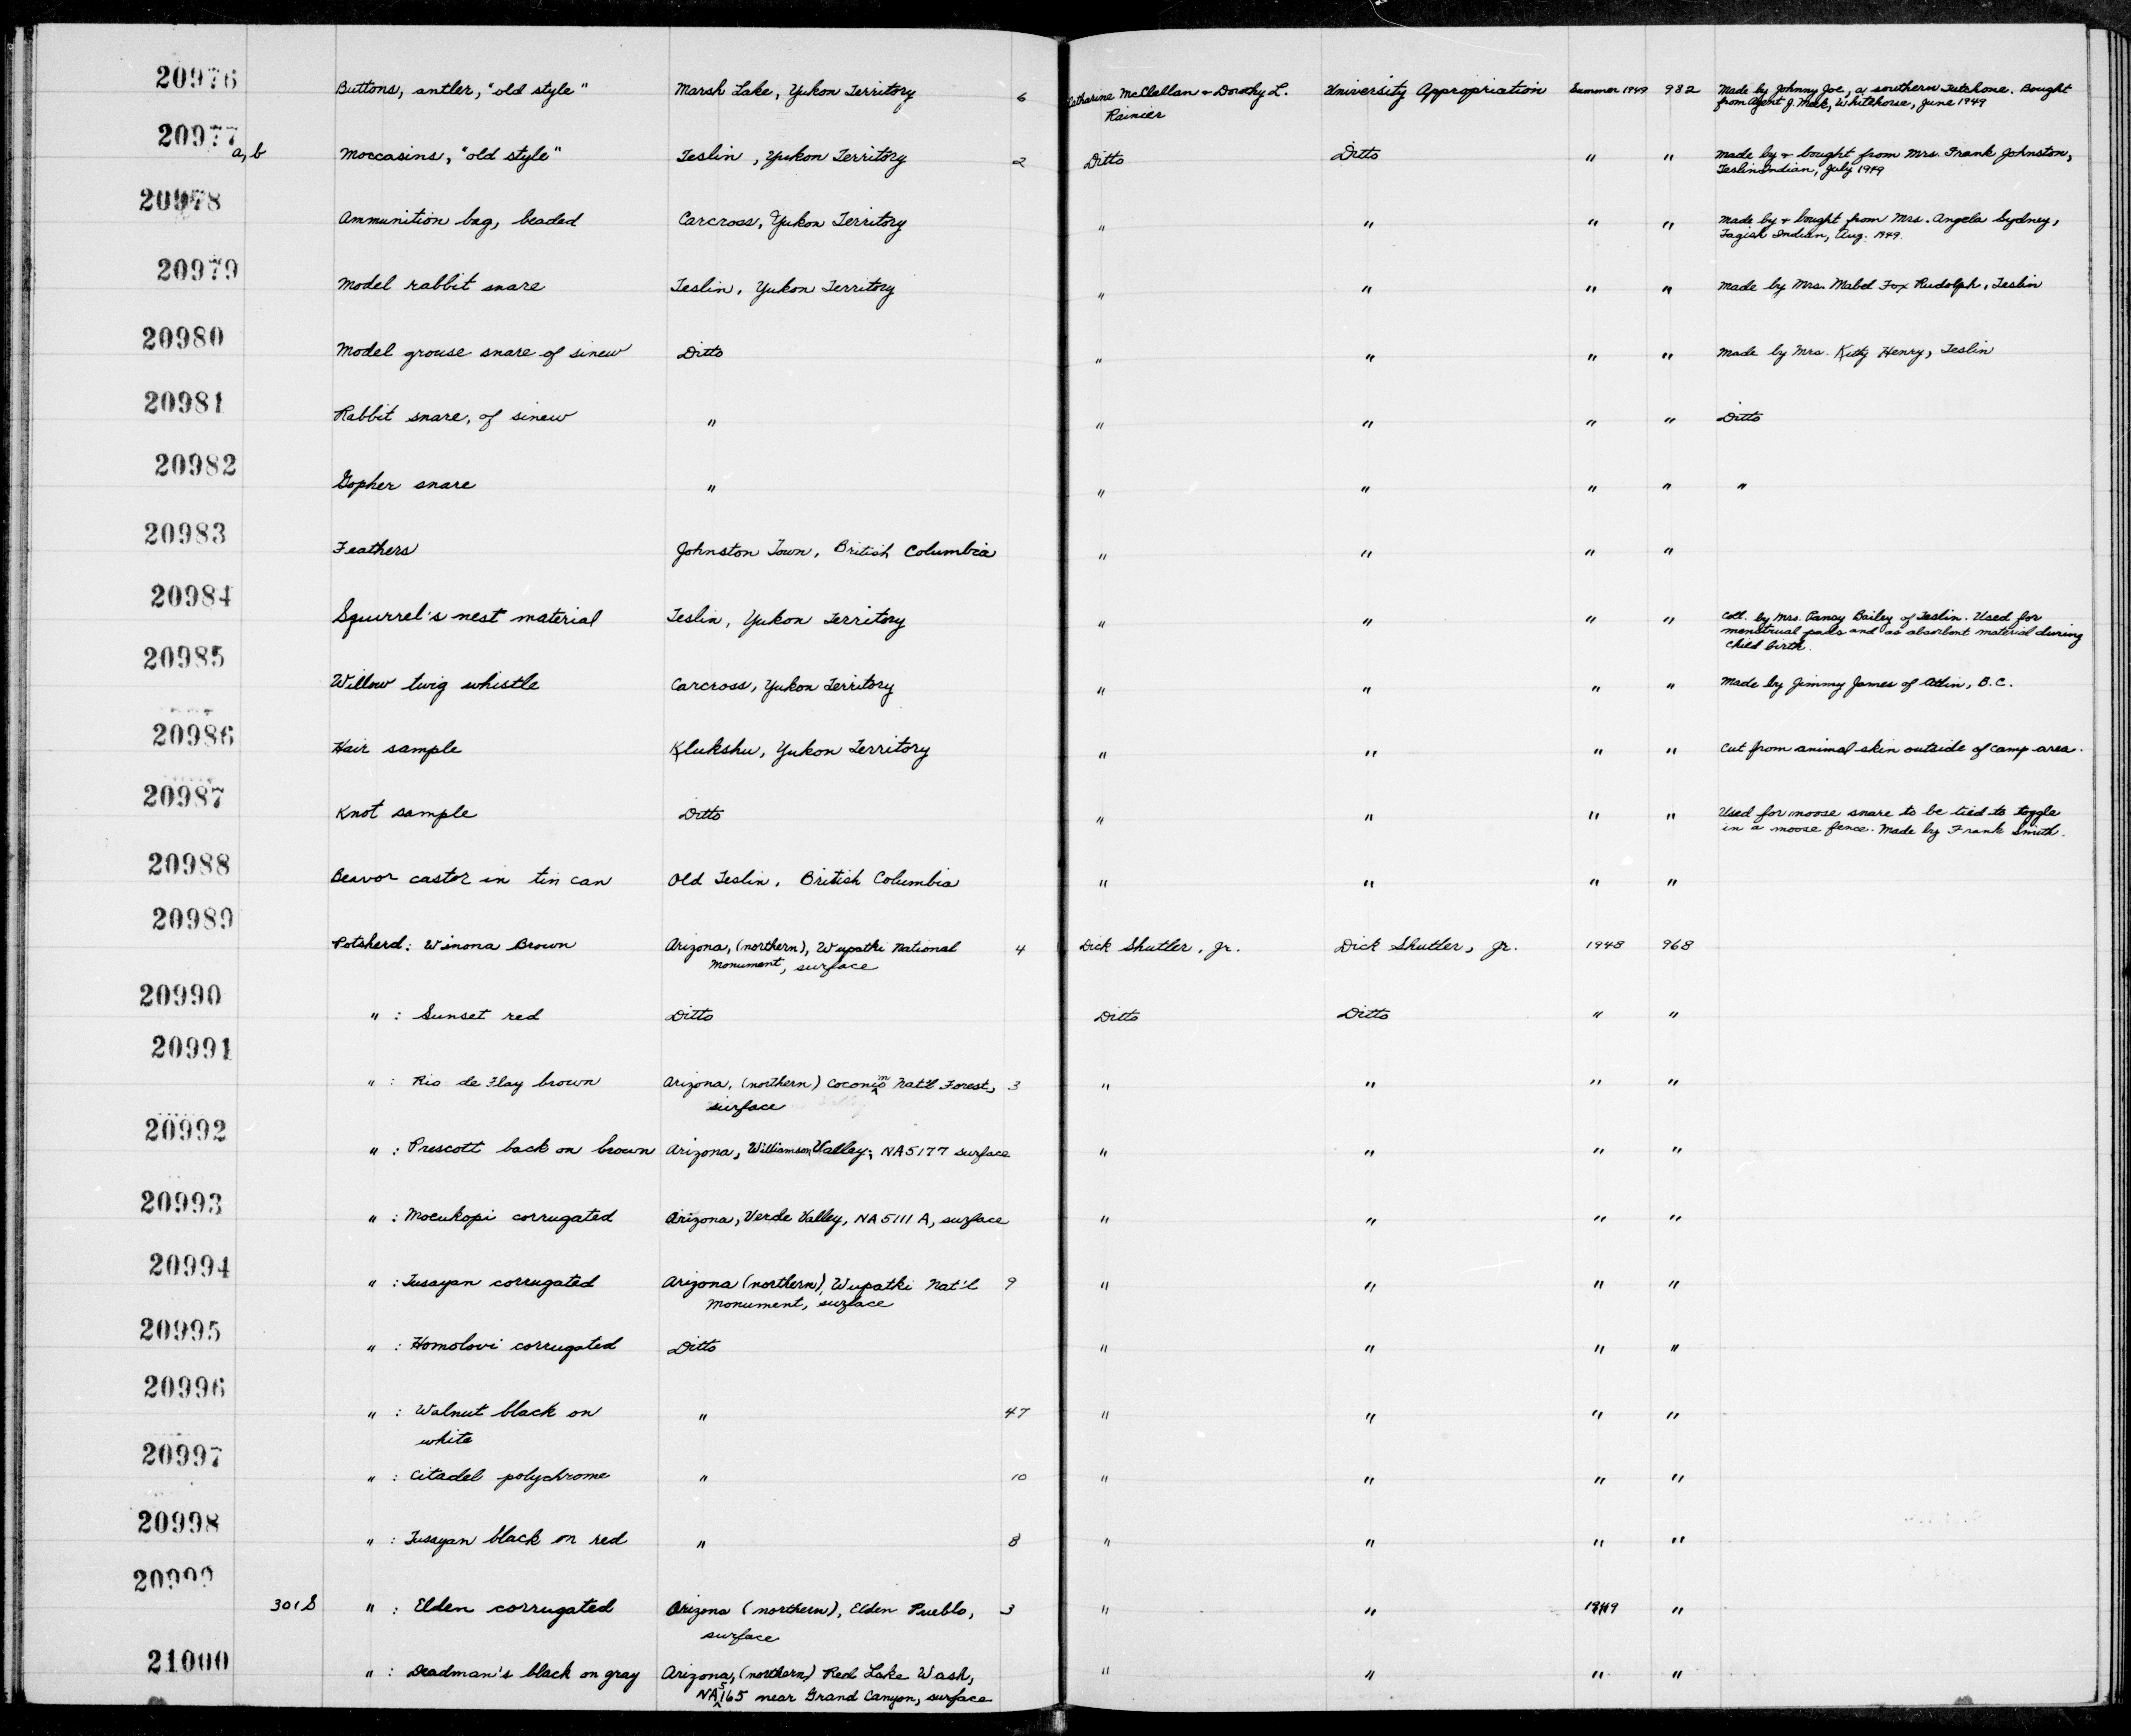 20976 Buttons, antler, "old style" Marsh Lake, Yukon Territory 6 Catharine McClellan + Dorothy L. University Appropriation Summer 1949 982 Made by Johnny Joe, a southern Tutchone. Bought
Rainier from Agent J. Meek, Whitehorse, June 1949
20977 a, b Moccasins, "old style" Teslin, Yukon Territory 2 Ditto Ditto " " Made by + bought from Mrs. Frank Johnston,
Teslin Indian, July 1949
20978 Ammunition bag, beaded Carcross, Yukon Territory " " " " Made by + bought from Mrs. Angela Sydney,
Tagish Indian, Aug. 1949.
20979 Model rabbit snare Teslin, Yukon Territory " " " " Made by Mrs. Mabel Fox Rudolph, Teslin
20980 Model grouse snare of sinew Ditto " " " " Made by Mrs. Kitty Henry, Teslin
20981 Rabbit snare, of sinew " " " " " Ditto
20982 Gopher snare " " " " " "
20983 Feathers Johnston Town, British Columbia " " " "
20984 Squirrel's nest material Teslin, Yukon Territory " " " " Coll. by Mrs. Pansy Bailey of Teslin. Used for
menstrual pads and as absorbent material during
child birth.
20985 Willow twig whistle Carcross, Yukon Territory " " " " Made by Jimmy James of Atlin, B.C.
20986 Hair sample Klukshu, Yukon Territory " " " " Cut from animal skin outside of camp area.
20987 Knot sample Ditto " " " " Used for moose snare to be tied to toggle
in a moose fence. Made by Frank Smith.
20988 Beavor castor in tin can Old Teslin, British Columbia " " " "
20989 Potsherd: Winona Brown Arizona, (northern), Wupatki National 4 Dick Shutler, Jr. Dick Shutler, Jr. 1948 968
Monument, surface
20990 " : Sunset red Ditto Ditto Ditto " "
20991 " : Rio de Flag brown Arizona, (northern) Coconino Nat'l Forest, 3 " " " "
surface
20992 " : Prescott back on brown Arizona, Williamson Valley, NA5177 surface " " " "
20993 " : Moeukopi corrugated Arizona, Verde Valley, NA 5111 A, surface " " " "
20994 " : Tusayan corrugated Arizona (northern), Wupatki Nat'l 9 " " " "
Monument, surface
20995 " : Homolovi corrugated Ditto " " " "
20996 " : Walnut black on " 47 " " " "
white
20997 " : Citadel polychrome " 10 " " " "
20998 " : Tusayan black on red " 8 " " " "
20999 301S " : Elden corrugated Arizona (northern), Elden Pueblo, 3 " " 1949 "
surface
21000 " : Deadman's black on gray Arizona, (northern) Red Lake Wash, " " " "
NA5165 near Grand Canyon, surface